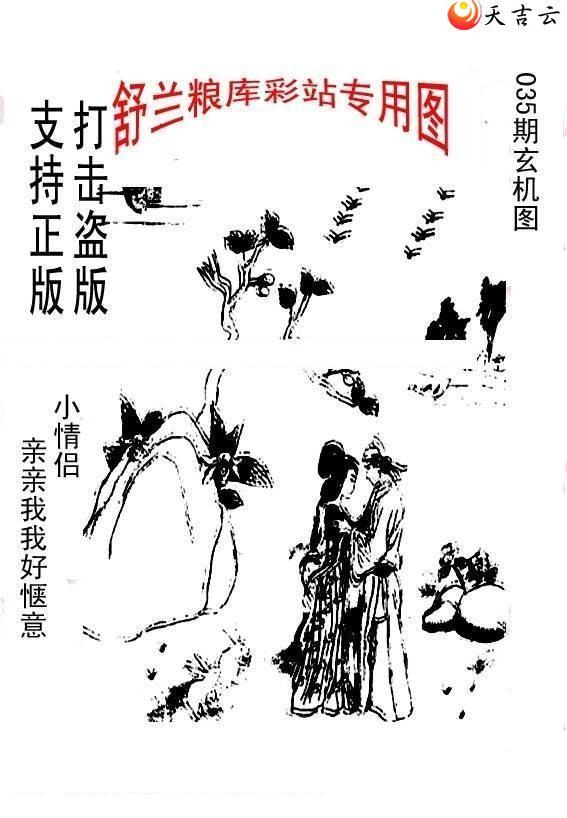 天吉云
舒兰粮库彩站专用图
035期玄机图
打击盗版
支持正版
小情侣
亲亲我我好惬意